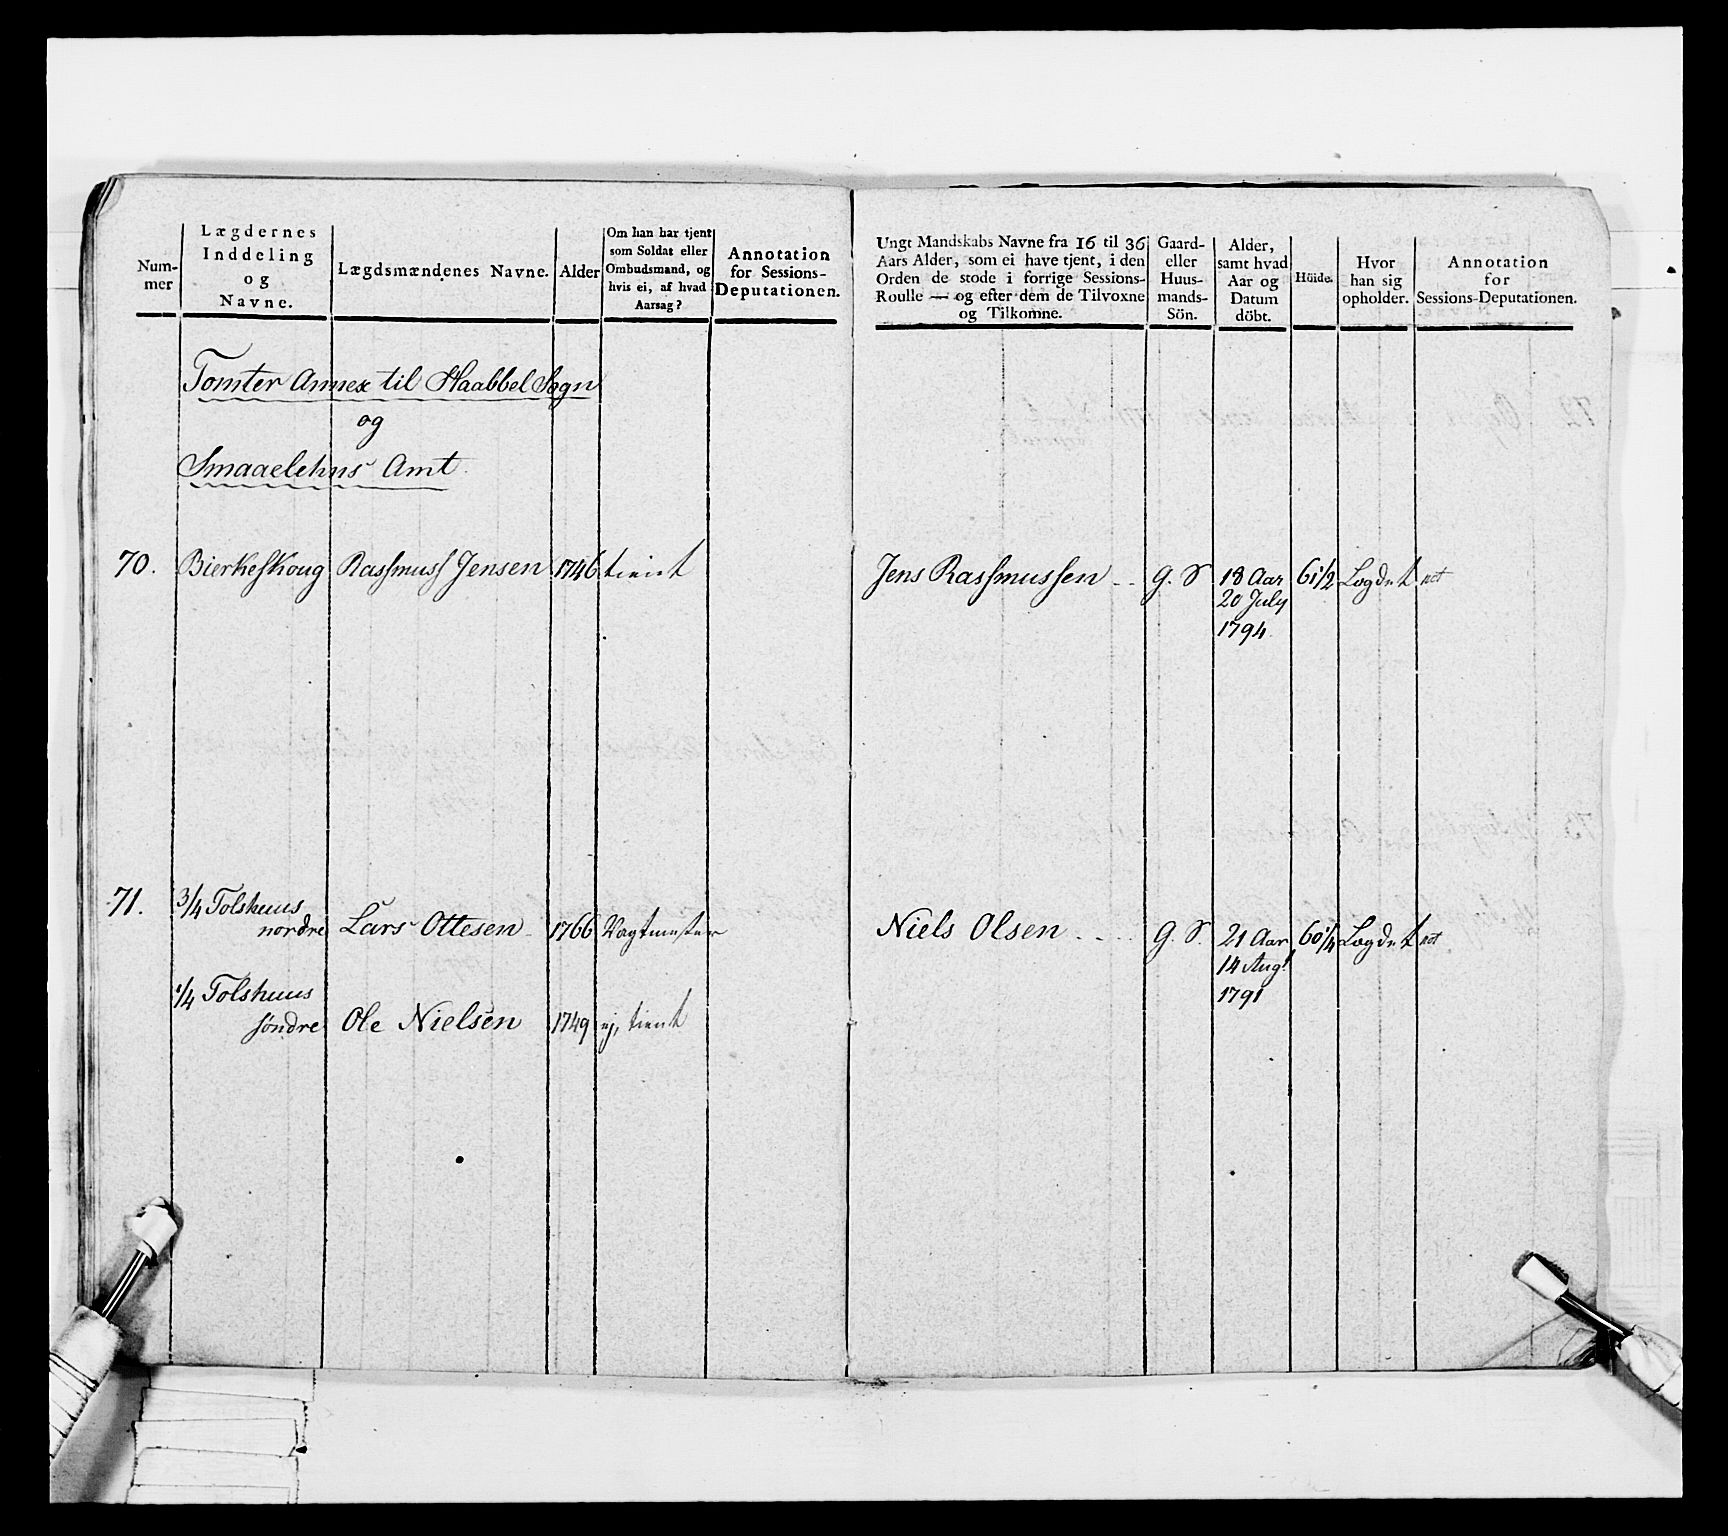 Num-
mer
Lægdernes
Inddeling
og
Navne.
Lægdsmændenes Navne.
Alder
Om han har tjent
som Soldat eller
Ombudsmand, og
hvis ei, af hvad
Aarsag?
Annotation
for Sessions-
Deputationen.
Ungt Mandskabs Navne fra 16 til 36
Aars Alder, som ei have tjent, i den
Orden de stode i forrige Sessions-
Roulle — og efter dem de Tilvoxne
og Tilkomne.
Gaard-
eller
Huus-
mands-
Sön.
Alder,
samt hvad
Aar og
Datum
döbt.
Höide.
Hvor
han sig
opholder.
Annotation
for
Sessions-Deputationen.
Tomter Annex til Haabbel Sogn
og
Smaaelehns Amt
70. Bierkeskoug Rassmuss Jensen 1746 tient Jens Rassmussen -- G. S 18 Aar 61 1/2 Lægdet
20 July
1794.
71. 3/4 Tolshuus
nordre Lars Ottesen 1766 Vagtmester Niels Olsen .... G. S. 21 Aar 60 1/4 Lægdet
14 Augt
1791
1/4 Tolshuus
söndre Ole Nielsen 1749 ej, tient